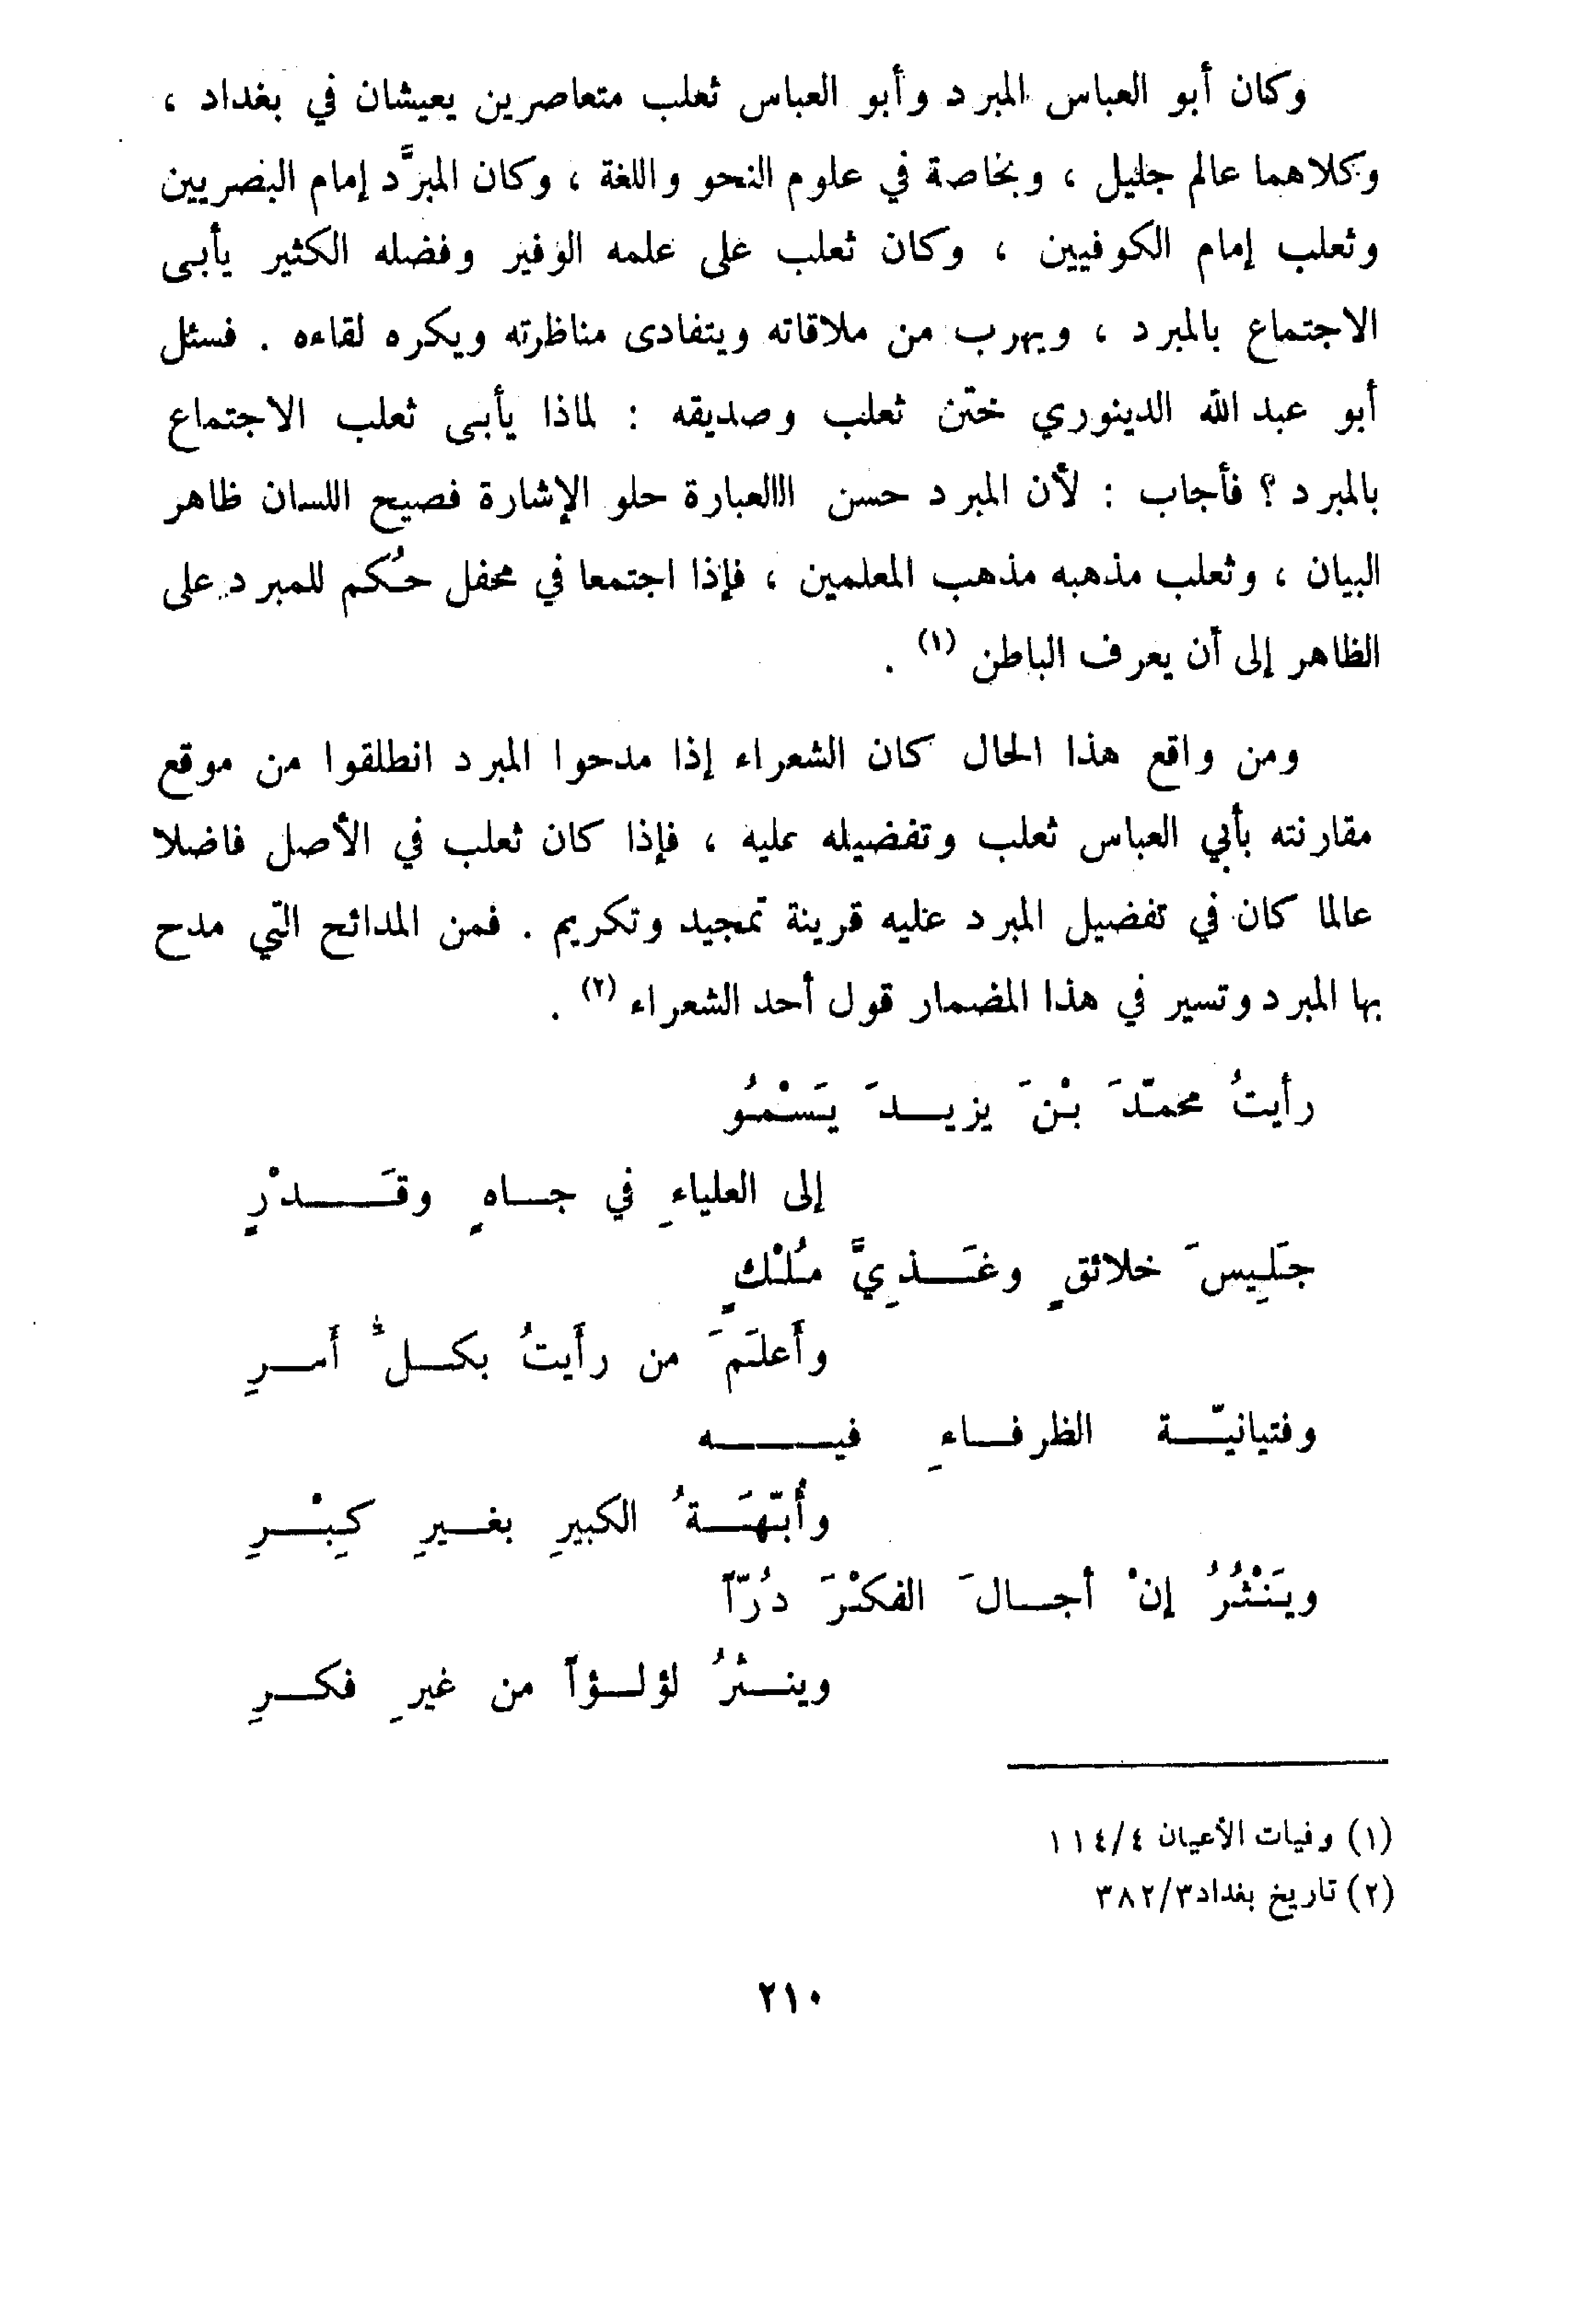 وكان أبو العباس المبرد وأبو العباس ثعلب متعاصرين يعيشان في بغداد ،
وكلاهما عالم جليل ، وبخاصة في علوم النحو واللغة ، وكان المبرَّد إمام البصريين
وثعلب إمام الكوفيين ، وكان ثعلب على علمه الوفير وفضله الكثير يأبى
الاجتماع بالمبرد ، ويهرب من ملاقاته ويتفادى مناظرته ويكره لقاءه . فسئل
أبو عبد الله الدينوري ختن ثعلب وصديقه : لماذا يأبى ثعلب الاجتماع
بالمبرد ؟ فأجاب : لأن المبرد حسن االعبارة حلو الإشارة فصيح اللسان ظاهر
البيان ، وثعلب مذهبه مذهب المعلمين ، فإذا اجتمعا في محفل حُكم للمبرد على
الظاهر إلى أن يعرف الباطن (١) .
ومن واقع هذا الحال كان الشعراء إذا مدحوا المبرد انطلقوا من موقع
مقارنته بأبي العباس ثعلب وتفضيله عليه ، فإذا كان ثعلب في الأصل فاضلا
عالما كان في تفضيل المبرد عليه قرينة تمجيد وتكريم . فمن المدائح التي مدح
بها المبرد وتسير في هذا المضمار قول أحد الشعراء (٢) .
رأيتُ محمّدَ بْنَ يزيـدَ يَسْمُو
إلى العلياءِ في جـاهٍ وقَـدْرٍ
جَلِيسَ خلائقٍ وغَـذِيَّ مُلْكٍ
وأعلَمَ من رأيتُ بكـلّ أمـرِ
وفتيانيّـة الظرفـاءِ فيـه
وأُبّهَـةُ الكبيرِ بغـيرِ كِبْـرِ
ويَنْثُرُ إنْ أجـالَ الفكْرَ دُرّاً
وينـثرُ لؤلـؤاً من غيرِ فكـرِ
(١) وفيات الأعيان ١١٤/٤
(٢) تاريخ بغداد ٣٨٢/٣
٢١٠